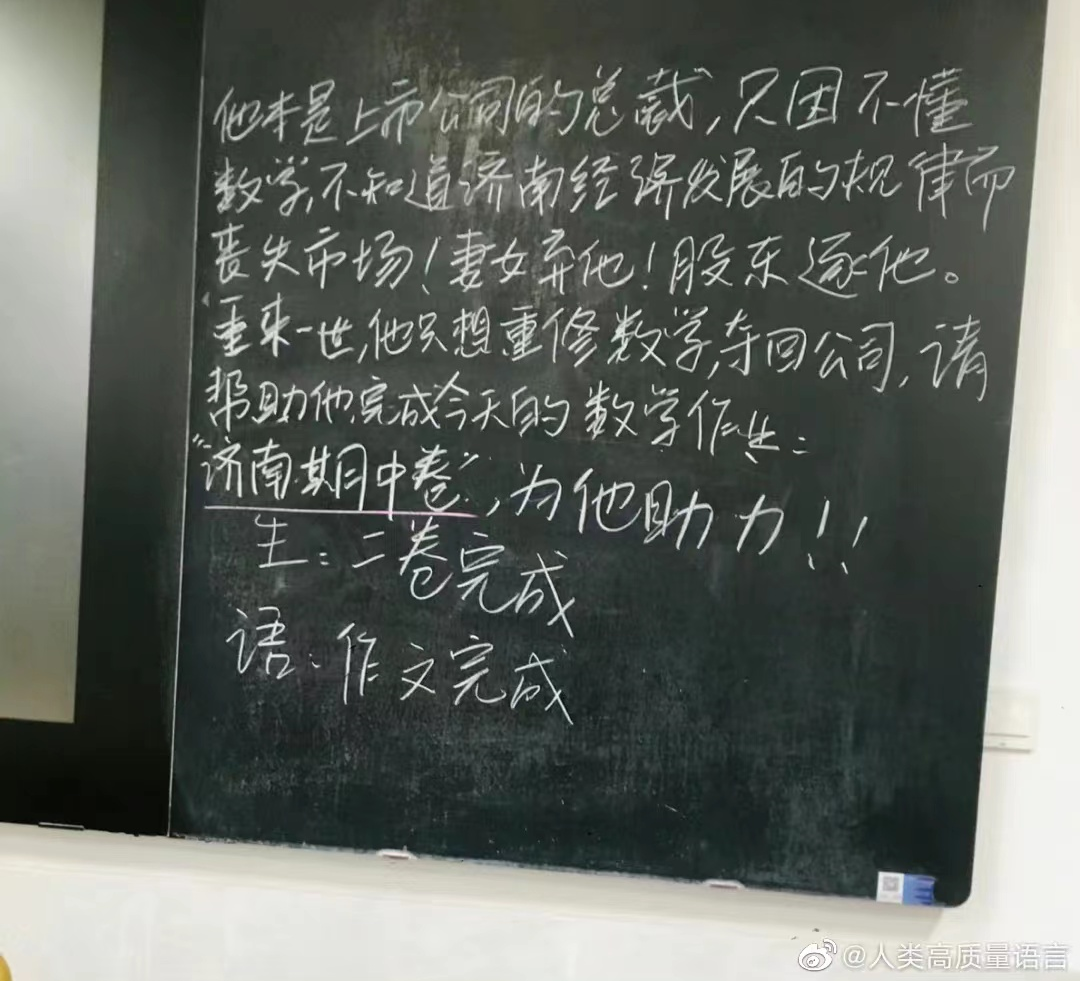 他本是上市公司的总裁，只因不懂
数学，不知道济南经济发展的规律而
丧失市场！妻女弃他！股东逐他。
重来一世，他只想重修数学，夺回公司，请
帮助他完成今天的数学作业：
“济南期中卷”，为他助力！！
生：二卷完成
语：作文完成
@人类高质量语言